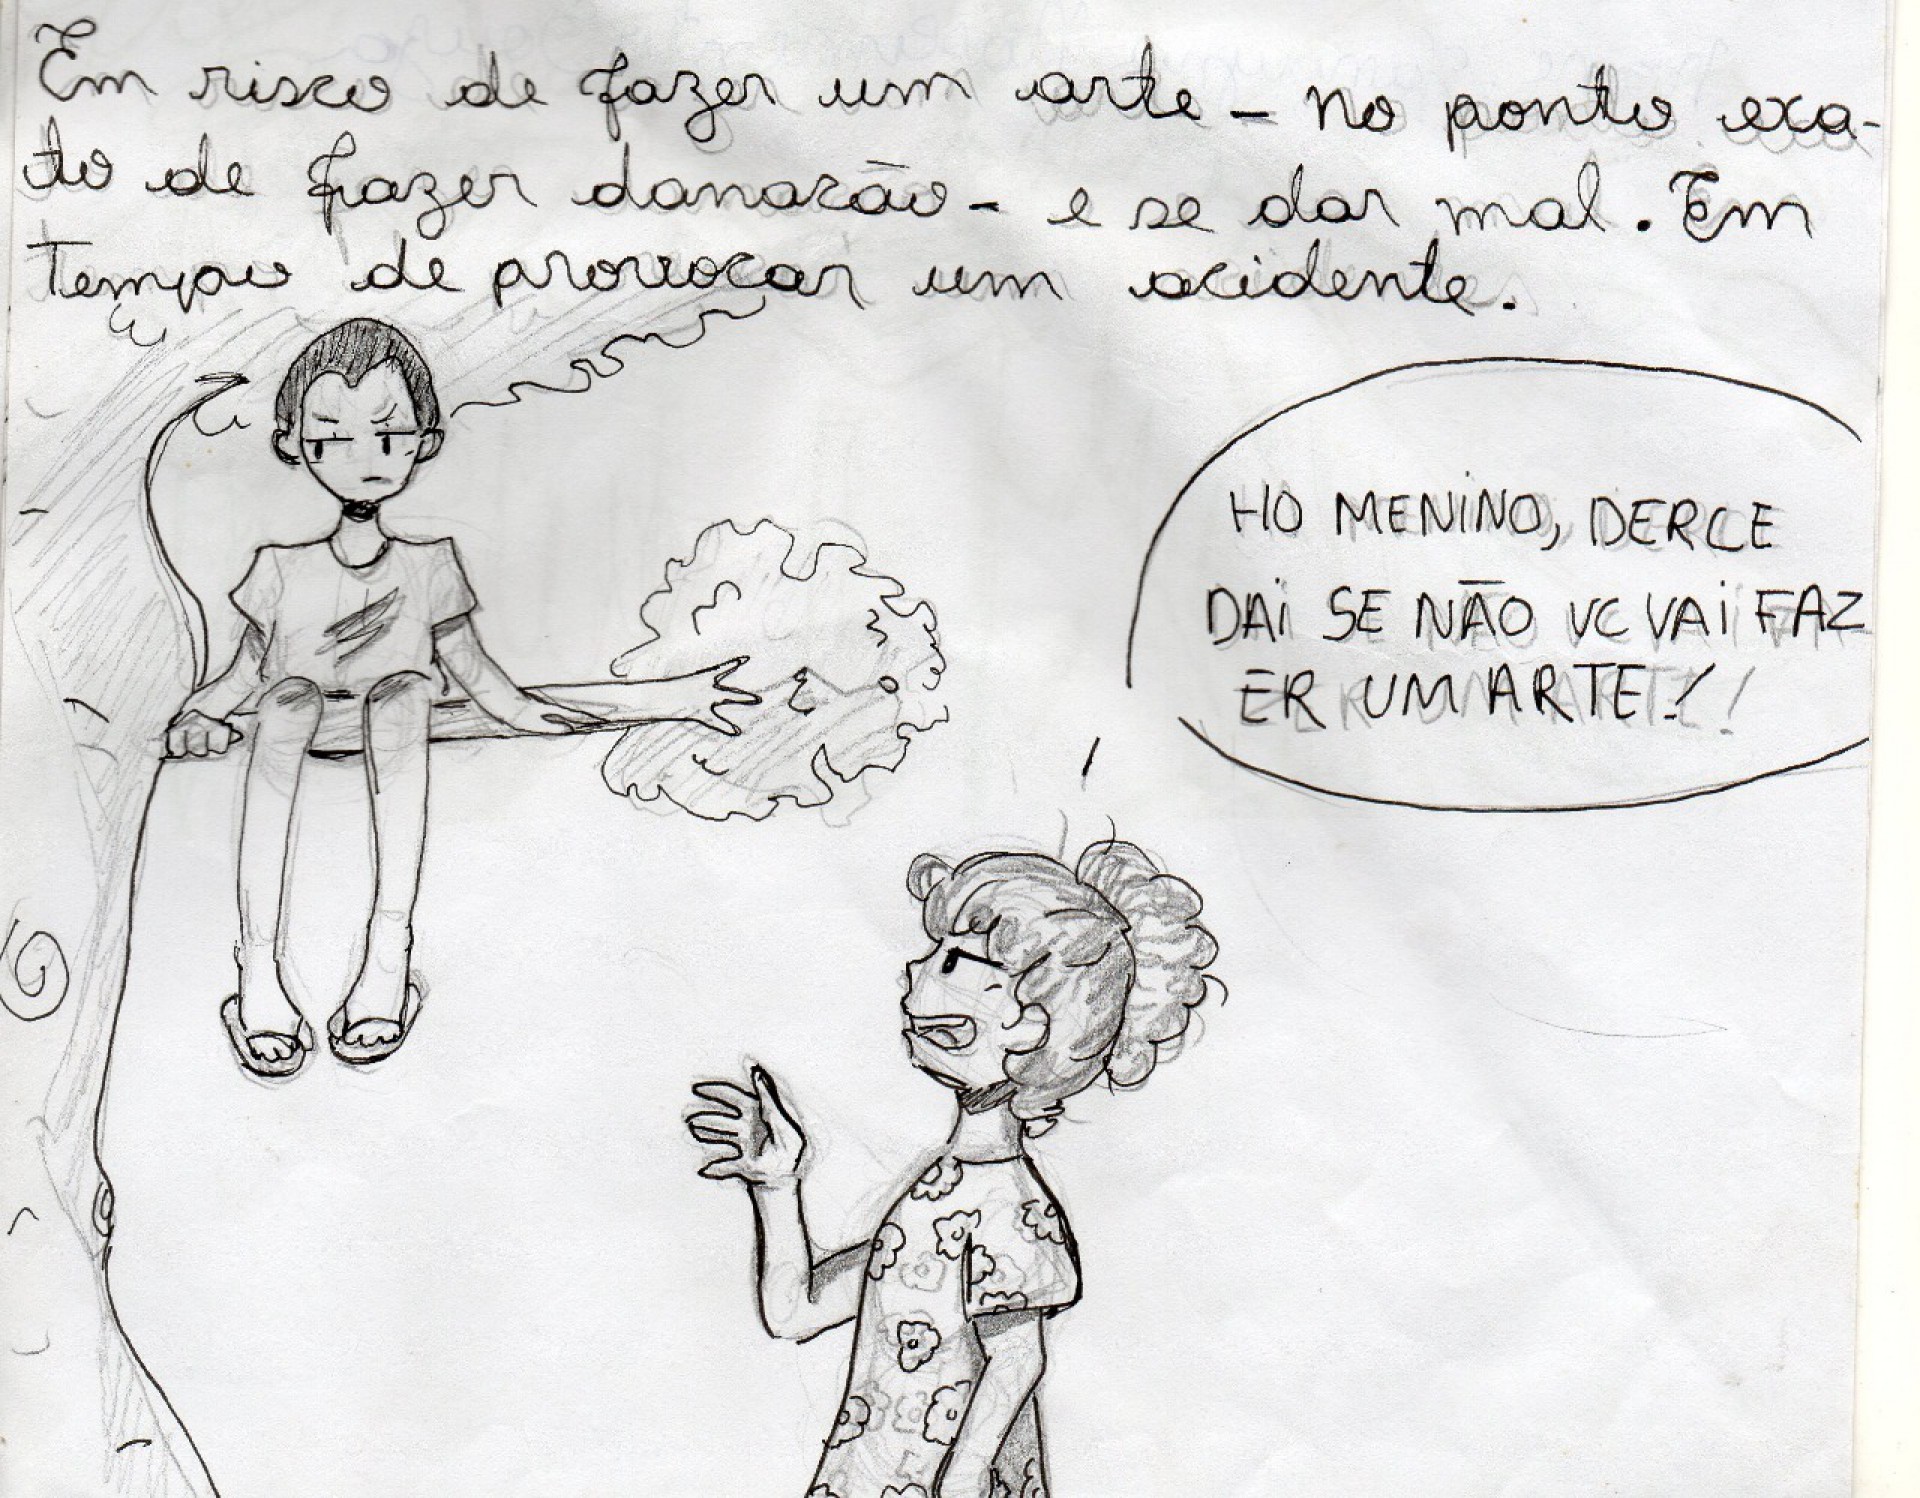 Em risco de fazer um arte - no ponto exa-
to de fazer danação - e se dar mal. Em
tempo de provocar um acidente.
HO MENINO, DERCE
DAI SE NÃO VC VAI FAZ
ER UM ARTE!!